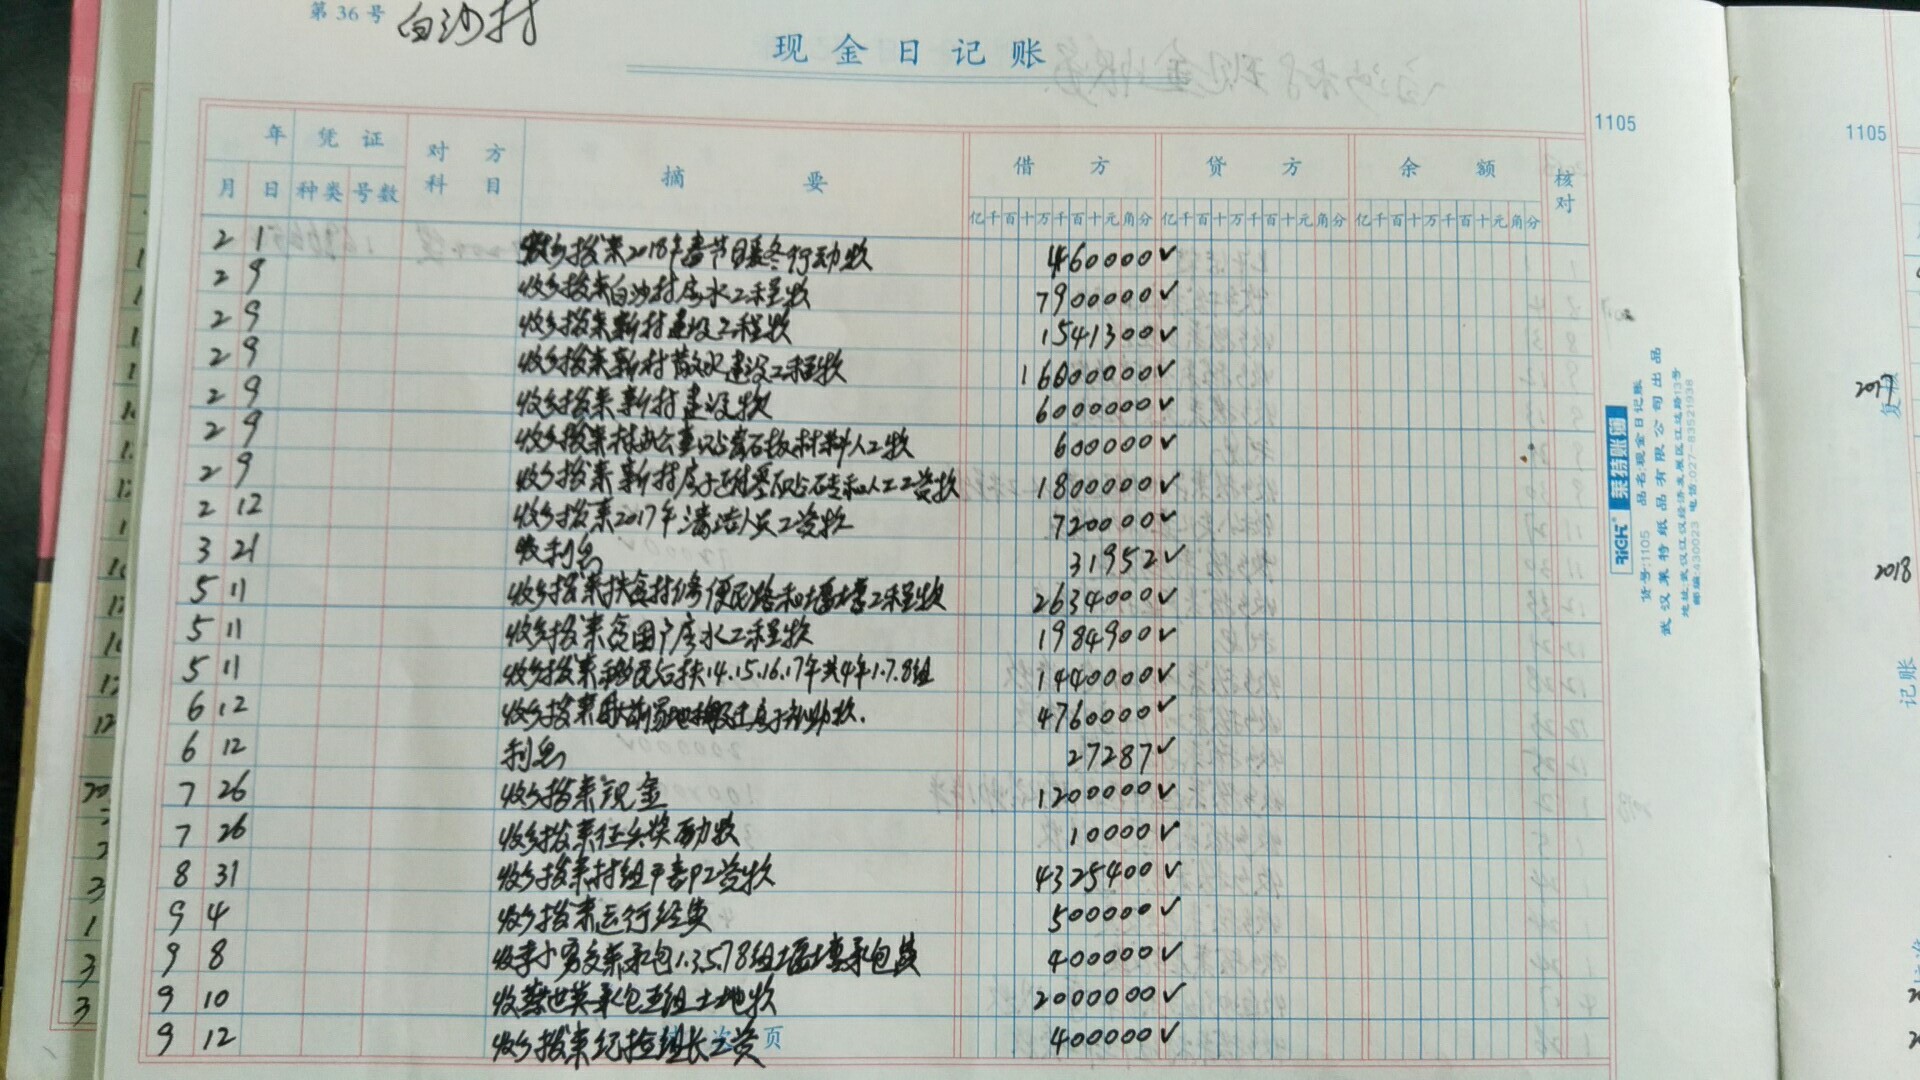 第36号 白沙村
现金日记账
1105
1105
年 凭证 对方科目 摘要 借方 贷方 余额 核对
月 日 种类 号数
亿千百十万千百十元角分 亿千百十万千百十元角分 亿千百十万千百十元角分
2 1 收乡拨来2018年春节暖冬行动款 460000✓
2 9 收乡拨来白沙村房水工程款 7900000✓
2 9 收乡拨来新村建设工程款 1541300✓
2 9 收乡拨来新村散水建设工程款 16600000✓
2 9 收乡拨来新村建设款 6000000✓
2 9 收乡拨来村办公室贴瓷石板材料人工款 600000✓
2 9 收乡拨来新村房子贴砖和人工工资款 1800000✓
2 12 收乡拨来2017年清洁人员工资款 720000✓
3 21 收利息 31952✓
5 11 收乡拨来扶贫村修便民路和堰塘工程款 2634000✓
5 11 收乡拨来贫困户房水工程款 1984900✓
5 11 收乡拨来移民后扶14.15.16.17年共4年1.7.8组 1440000✓
6 12 收乡拨来易地搬迁房子补助款. 4760000✓
6 12 利息 27287✓
7 26 收乡拨来现金 1200000✓
7 26 收乡拨来征兵奖励款 10000✓
8 31 收乡拨来村组干部工资款 4325400✓
9 4 收乡拨来运行经费 500000✓
9 8 收李小勇交来承包1.3.5.7.8组堰塘承包费 400000✓
9 10 收蔡世英承包五组土地款 2000000✓
9 12 收乡拨来纪检组长工资 400000✓
页
RICH® 莱特账簿
货号:1105 品名:现金日记账
武汉莱特纸品有限公司出品
地址:武汉江汉经济发展区江达路13号
邮编:430023 电话:027-83521938
2017
2018
记账